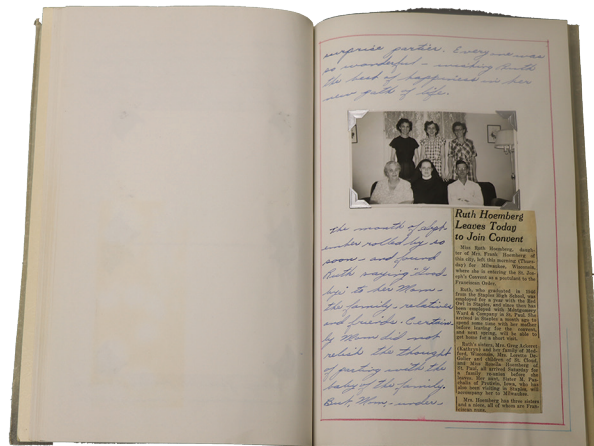 surprise parties. Everyone was
so wonderful - wishing Ruth
the best of happiness in her
new path of life.
The month of Sept-
ember rolled by so
soon - and found
Ruth saying "Good-
bye" to her Mom -
the family - relatives
and friends. Certain-
ly Mom did not
relish the thought
of parting with the
baby of the family.
But, Mom, under-
Ruth Hoemberg
Leaves Today
to Join Convent
Miss Ruth Hoemberg, daugh-
ter of Mrs. Frank Hoemberg of
this city, left this morning (Thurs-
day) for Milwaukee, Wisconsin,
where she is entering the St. Jo-
seph's Convent as a postulant to the
Franciscan Order.
Ruth, who graduated in
from the Staples High School, was
employed for a year with the Red
Owl in Staples, and since then has
been employed with Montgomery
Ward & Company in St. Paul. She
arrived in Staples a month ago to
spend some time with her mother
before leaving for the convent,
and next spring, will be able to
get home for a short visit.
Ruth's sisters, Mrs. Greg
(Kathryn) and her family of Med-
ford, Wisconsin, Mrs. Loretta
and children of St. Cloud,
and Miss Hoemberg of
St. Paul, all arrived Saturday for
a family reunion before she
leaves. Her aunt, Sister M.
of Iowa, who has
also been visiting in Staples, will
accompany her to Milwaukee.
Mrs. Hoemberg has three sisters
and a niece, all of whom are Fran-
ciscan nuns.